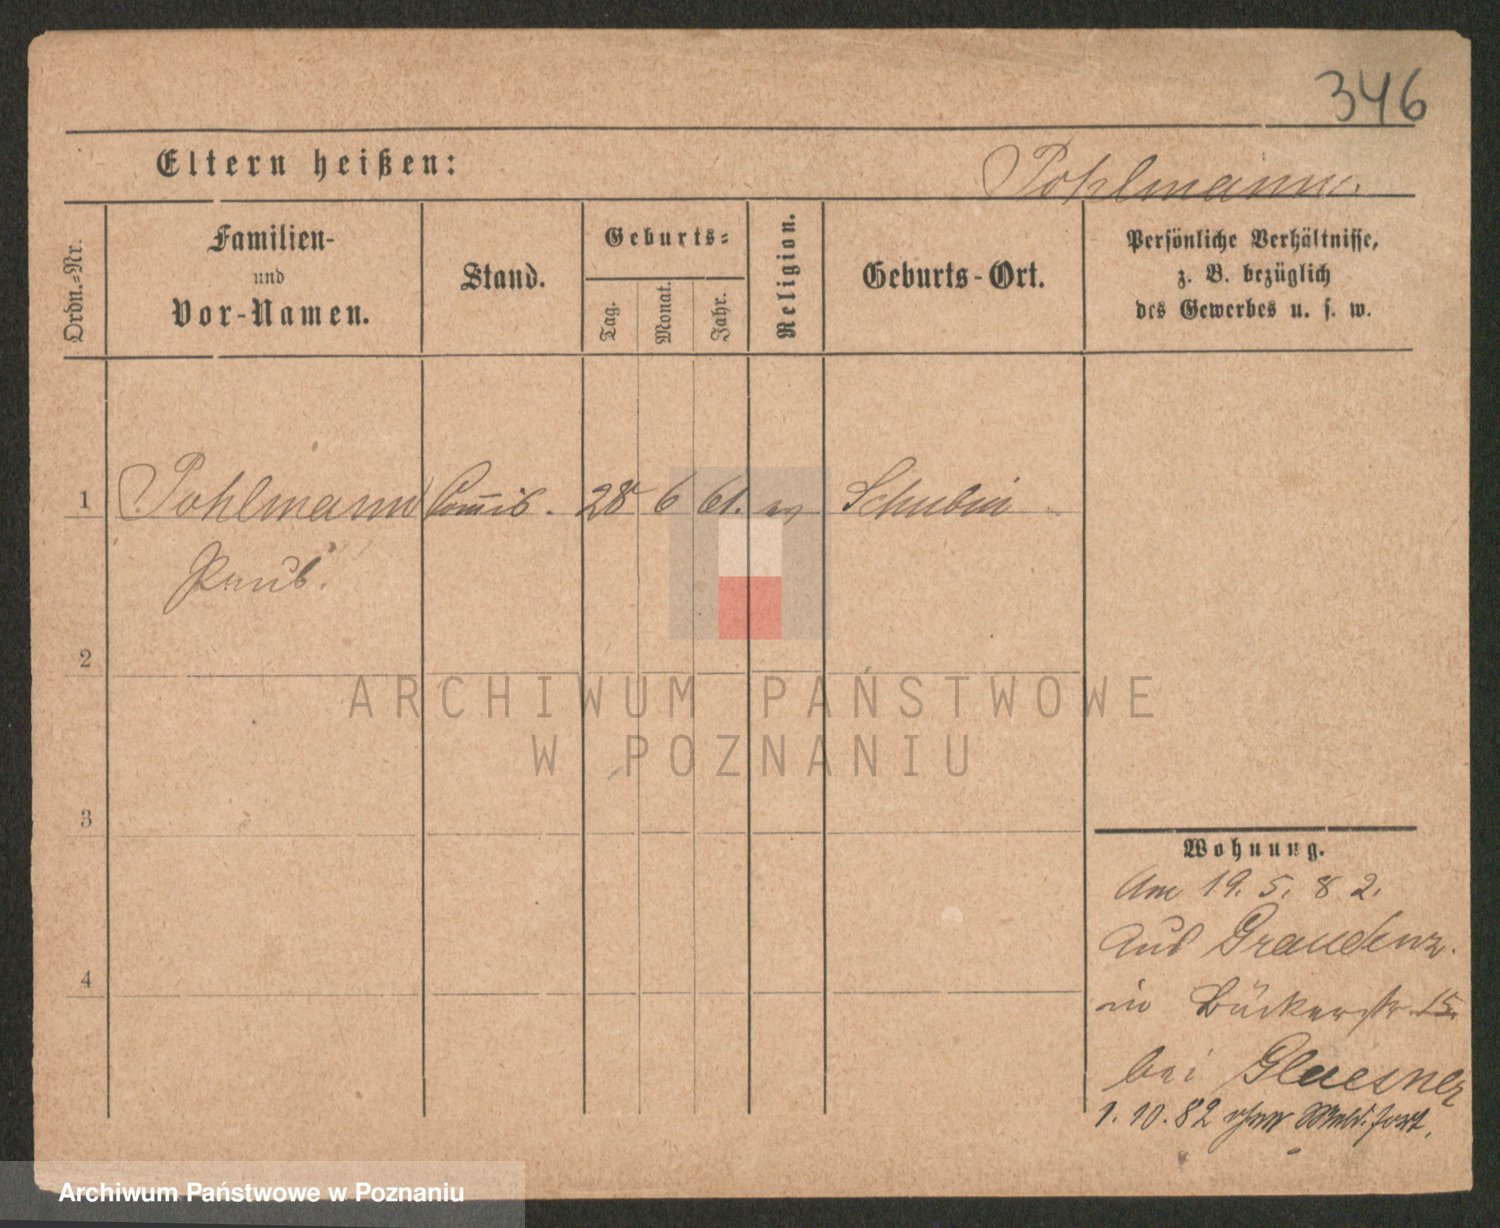 346
Eltern heißen:
Pohlmann.
Ordn.-Nr.
Familien-
und
Vor-Namen.
Stand.
Geburts-
Tag.
Monat.
Jahr.
Religion.
Geburts-Ort.
Persönliche Verhältnisse,
z. B. bezüglich
des Gewerbes u. s. w.
1 Pohlmann Commis. 28 6 61. ev Schubin
Paul.
2
3
4
Wohnung.
Am 19. 5. 82.
Aus Graudenz.
in Bäckerstr. 15.
bei Gluesner
1. 10. 82 ohne Meld. fort.
ARCHIWUM PAŃSTWOWE
W POZNANIU
Archiwum Państwowe w Poznaniu